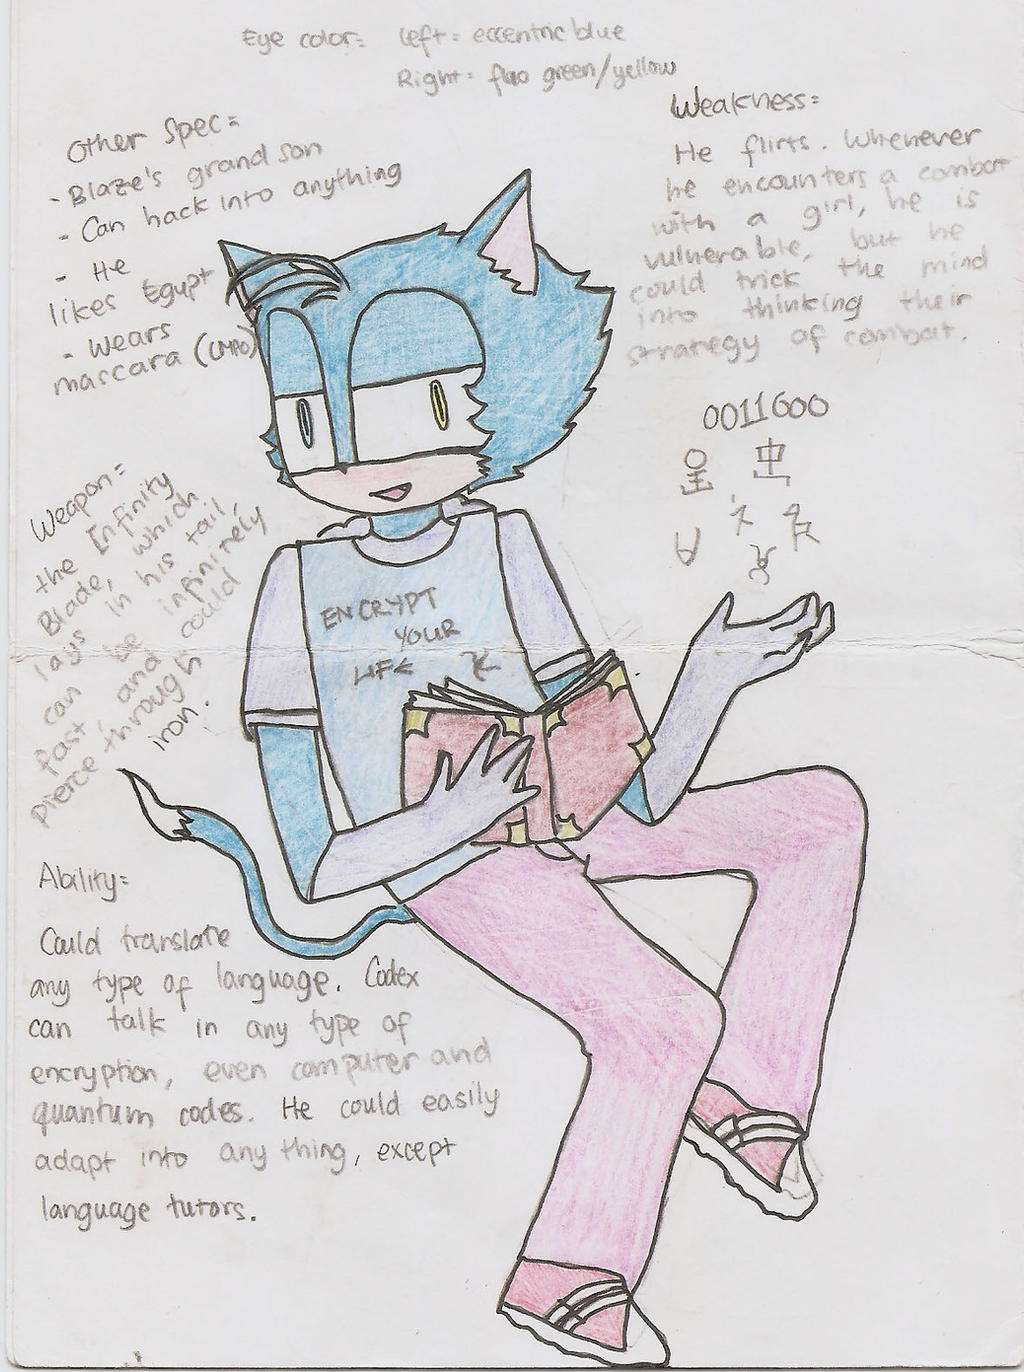 Eye color= Left= eccentric blue
Right= fluo green/yellow
Other Spec=
- Blaze's grandson
- Can hack into anything
- He
likes Egypt
- Wears
mascara (LMAO)
Weakness=
He flirts. Whenever
he encounters a combat
with a girl, he is
vulnerable, but he
could trick the mind
into thinking their
strategy of combat.
0011600
Weapon=
the Infinity
Blade, which
lays in his tail,
can be infinitely
fast, and could
pierce through
iron.
ENCRYPT
YOUR
LIFE
Ability=
Could translate
any type of language. Codex
can talk in any type of
encryption, even computer and
quantum codes. He could easily
adapt into anything, except
language tutors.